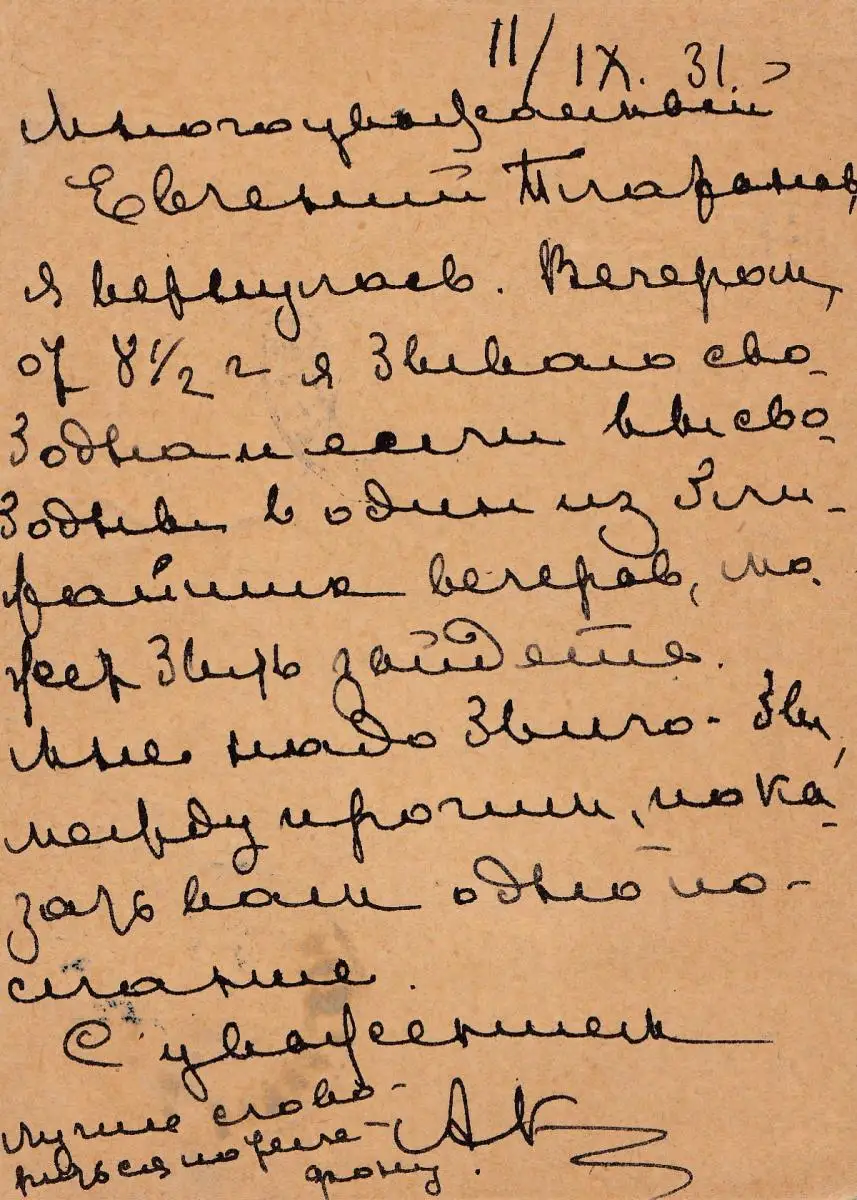 11/IX. 31.
Многоуважаемый
Евгений Платонов,
я вернулась. Вечером,
от 8 1/2 ч я бываю сво-
бодна и если вы сво-
бодны в один из бли-
жайших вечеров, мо-
жет быть зайдете.
Мне надо было-бы,
между прочим, пока-
зать вам одно по-
слание.
С уважением
АК
Лучше сгово-
риться по теле-
фону.